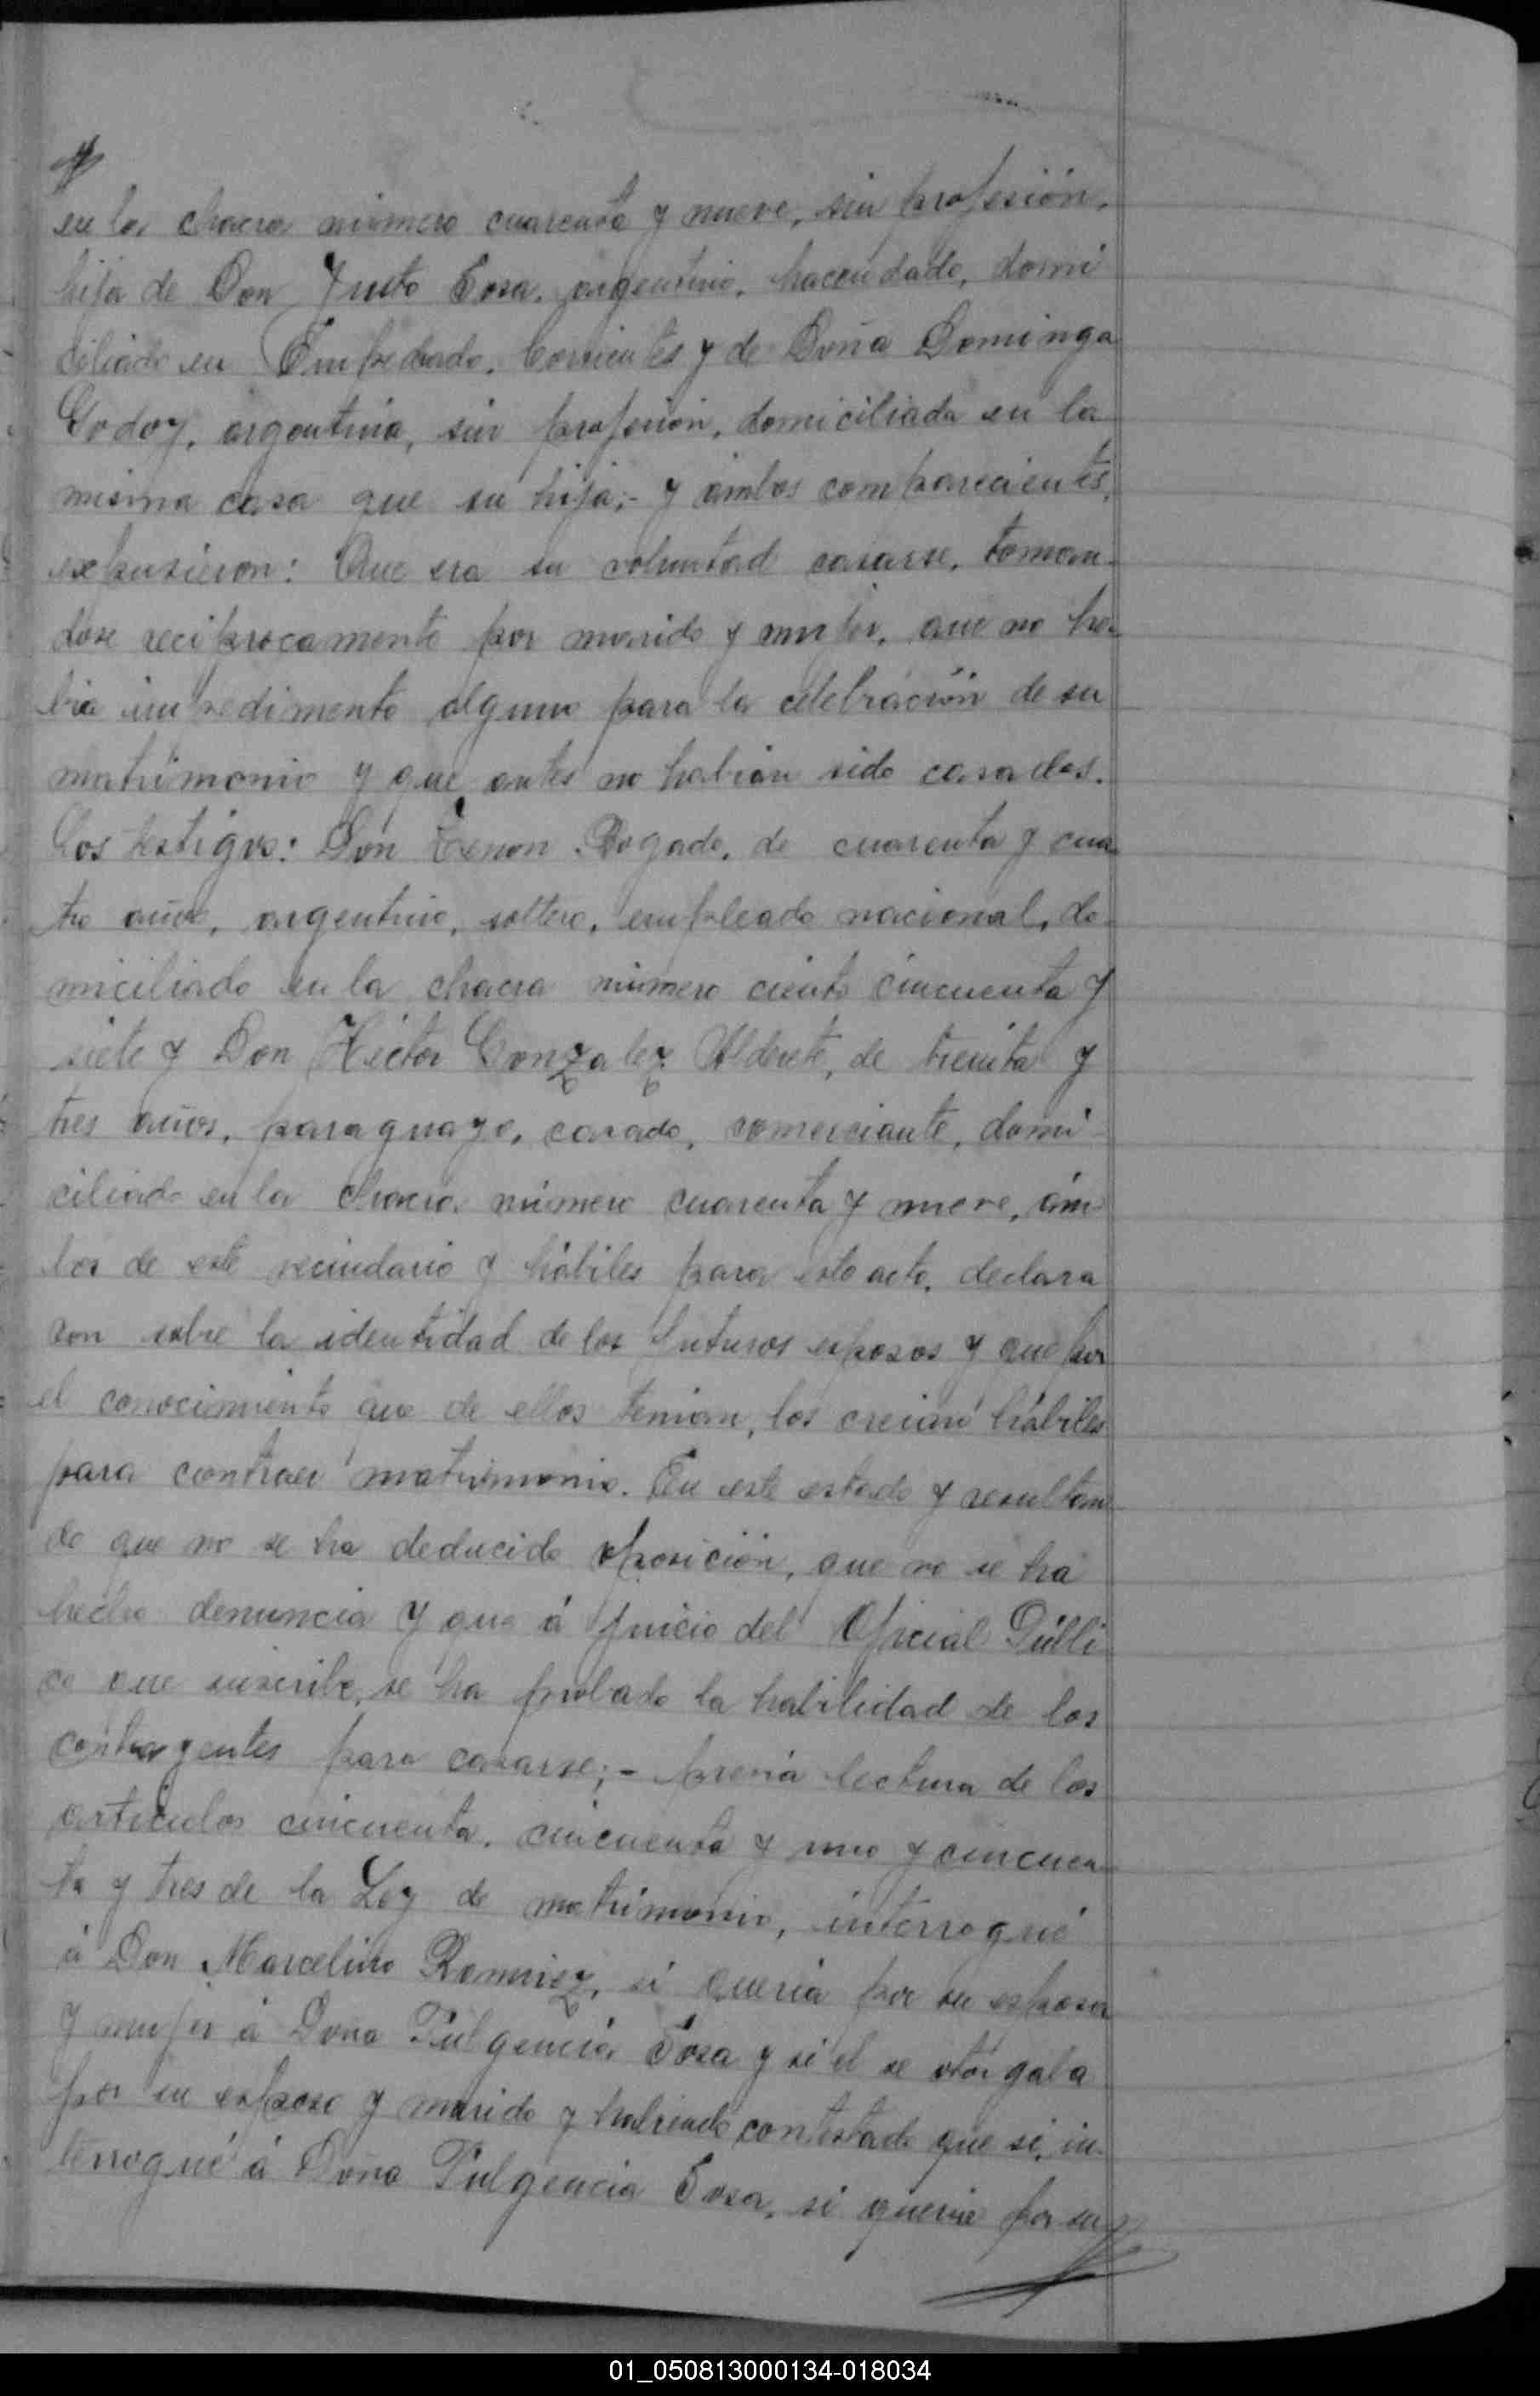 en la chacra número cuarenta y nueve, sin profesión,
hija de Don Justo Sosa, argentino, hacendado, domi
ciliado en Empedrado, Corrientes y de Doña Dominga
Godoy, argentina, sin profesión, domiciliada en la
misma casa que su hija;- y ámbos comparecientes,
expusieron: Que era su voluntad casarse, toman-
dose reciprocamente por marido y mujer, que no ha-
bia impedimento alguno para la celebración de su
matrimonio y que antes no habian sido casados.
Los testigos: Don Zenon Bogado, de cuarenta y cua
tro años, argentino, soltero, empleado nacional, do-
miciliado en la chacra número ciento cincuenta y
siete y Don Héctor Gonzalez Alderete, de treinta y
tres años, paraguayo, casado, comerciante, domi-
ciliado en la chacra número cuarenta y nueve, ám-
bos de este vecindario y hábiles para este acto, declara
ron sobre la identidad de los futuros esposos y que por
el conocimiento que de ellos tenian, los creian hábiles
para contraer matrimonio. En este estado y resultan
do que no se ha deducido oposición, que no se ha
hecho denuncia y que á juicio del Oficial Públi
co que suscribe, se ha probado la habilidad de los
contrayentes para casarse;- previa lectura de los
articulos cincuenta, cincuenta y uno y cincuen-
ta y tres de la Ley de matrimonio, interrogué
á Don Marcelino Ramirez, si queria por su esposa
y mujer á Doña Fulgencia Sosa y si el se otorgaba
por su esposo y marido y habiendo contestado que si, in-
terrogué á Doña Fulgencia Sosa, si queria por su
01_050813000134-018034